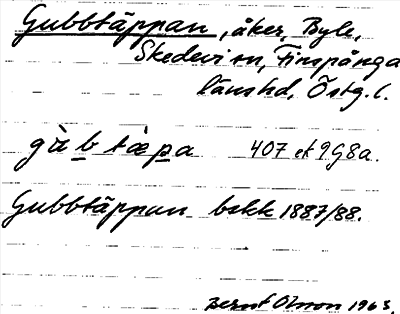 Gubbtäppan, åker, Byle,
Skedevi sn, Finspånga
länshd, Östg. l.
gùb tæpa 407 et 9G8a.
Gubbtäppan bskk 1887/88.
Bernt Olsson 1963.